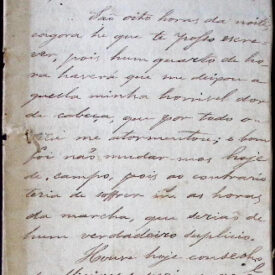 São oito horas da noite
e agora he que te posso escre-
ver, pois hum quarto de ho-
ra haverá que me deixou a
quella minha horrivel dor
de cabeça, que por todo o
me atormentou; e bom
foi não mudar mos hoje
de campo, pois ao contrario
teria de soffrer as horas
da marcha, que serião de
hum verdadeiro suplicio.
Houve hoje conselho